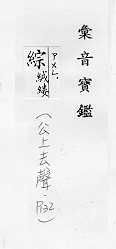 彙音寶鑑
ㄗㄨㄥ
綜 絨縷
(公上去聲·P32)